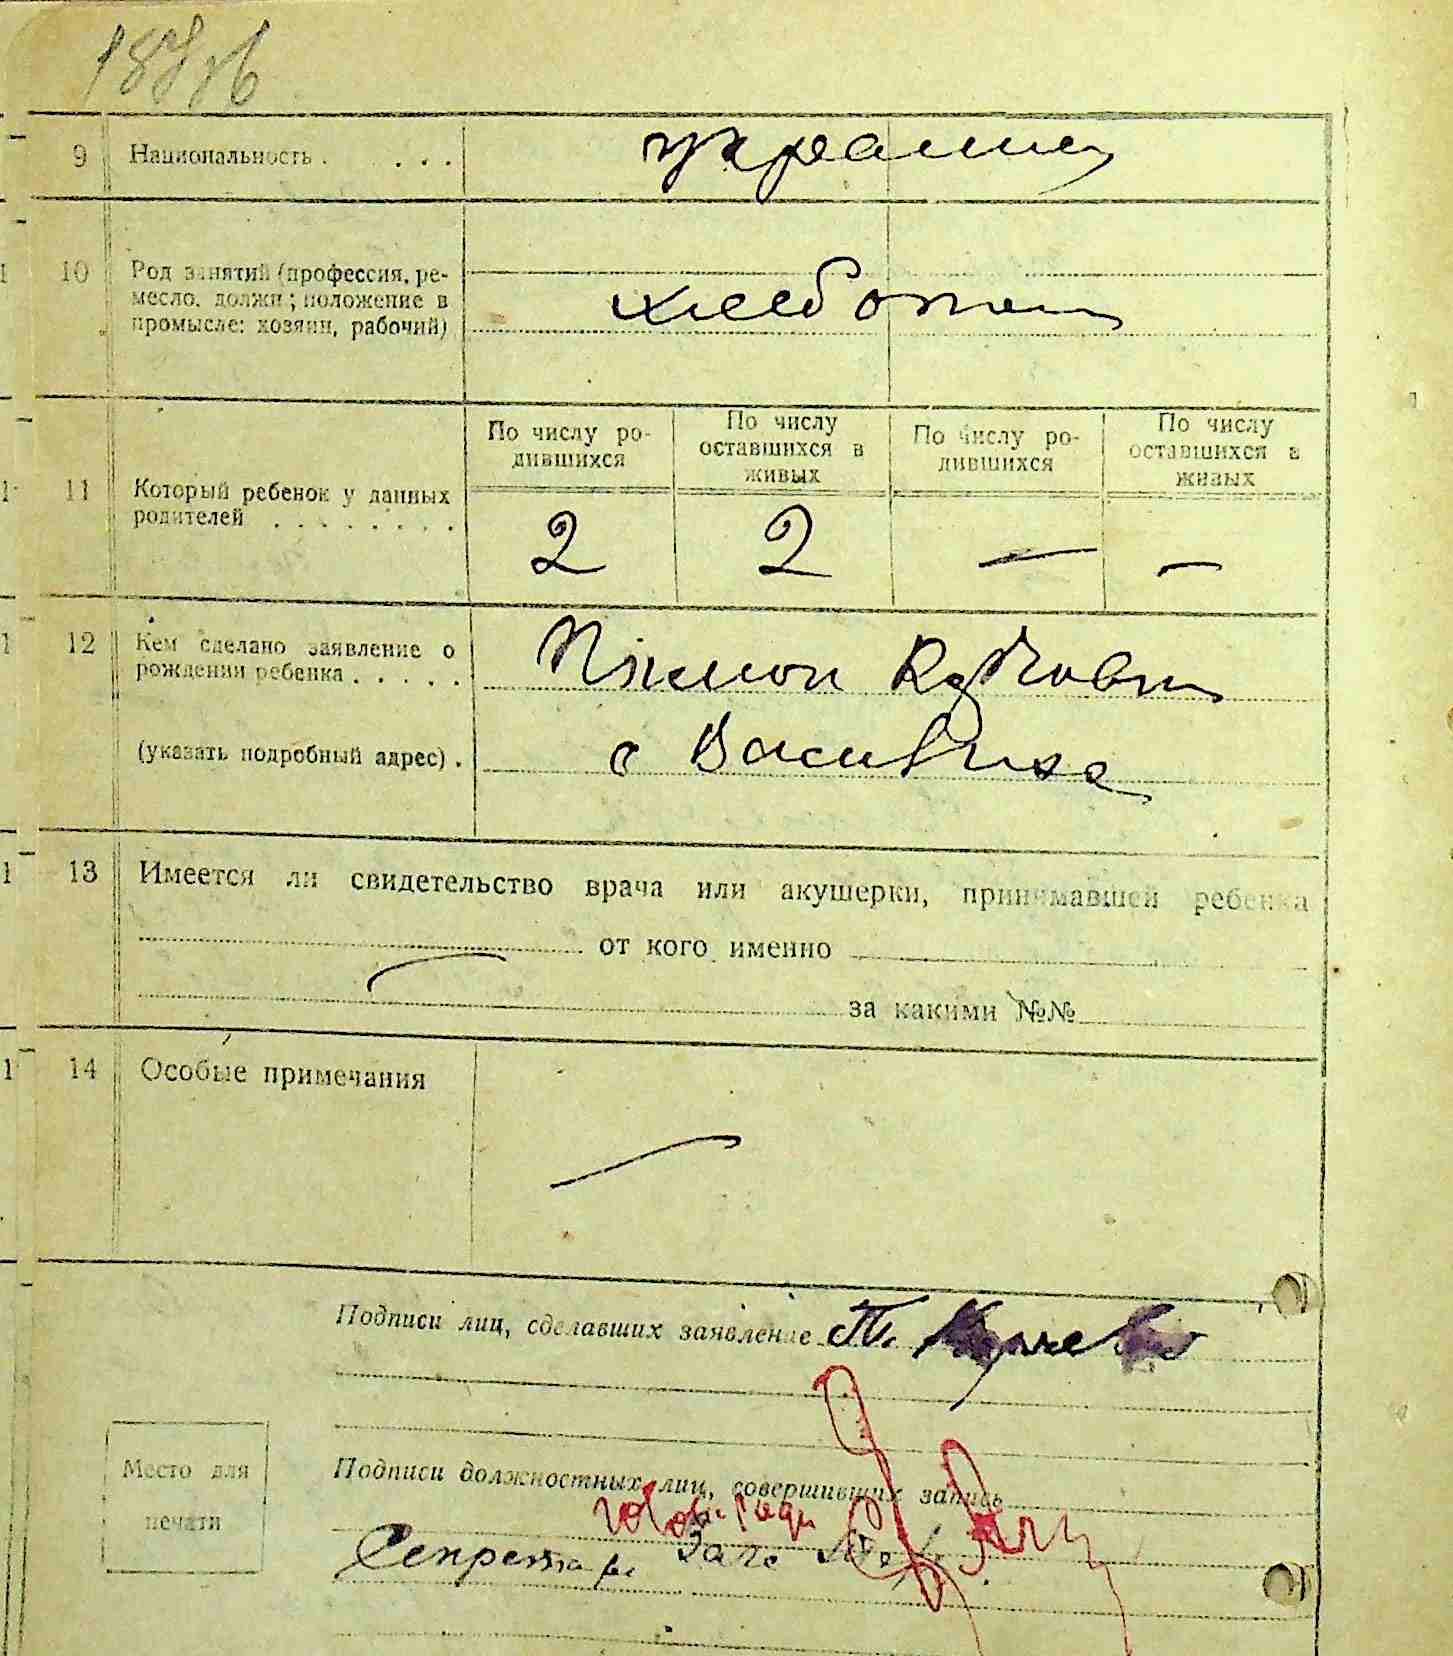 9 Национальность . . . . украинец
10 Род занятий (профессия, ре-
месло, должн; положение в
промысле: хозяин, рабочий)
хлебопаш
11 Который ребенок у данных
родителей . . . . . . . .
По числу ро-
дившихся
По числу
оставшихся в
живых
По числу ро-
дившихся
По числу
оставшихся в
живых
2 2 — —
12 Кем сделано заявление о
рождении ребенка . . . . .
(указать подробный адрес) .
с
13 Имеется ли свидетельство врача или акушерки, принимавшей ребенка
от кого именно
за какими №№
14 Особые примечания
—
Подписи лиц, сделавших заявление
Подписи должностных лиц, совершивших запись
Место для
печати
Секретарь